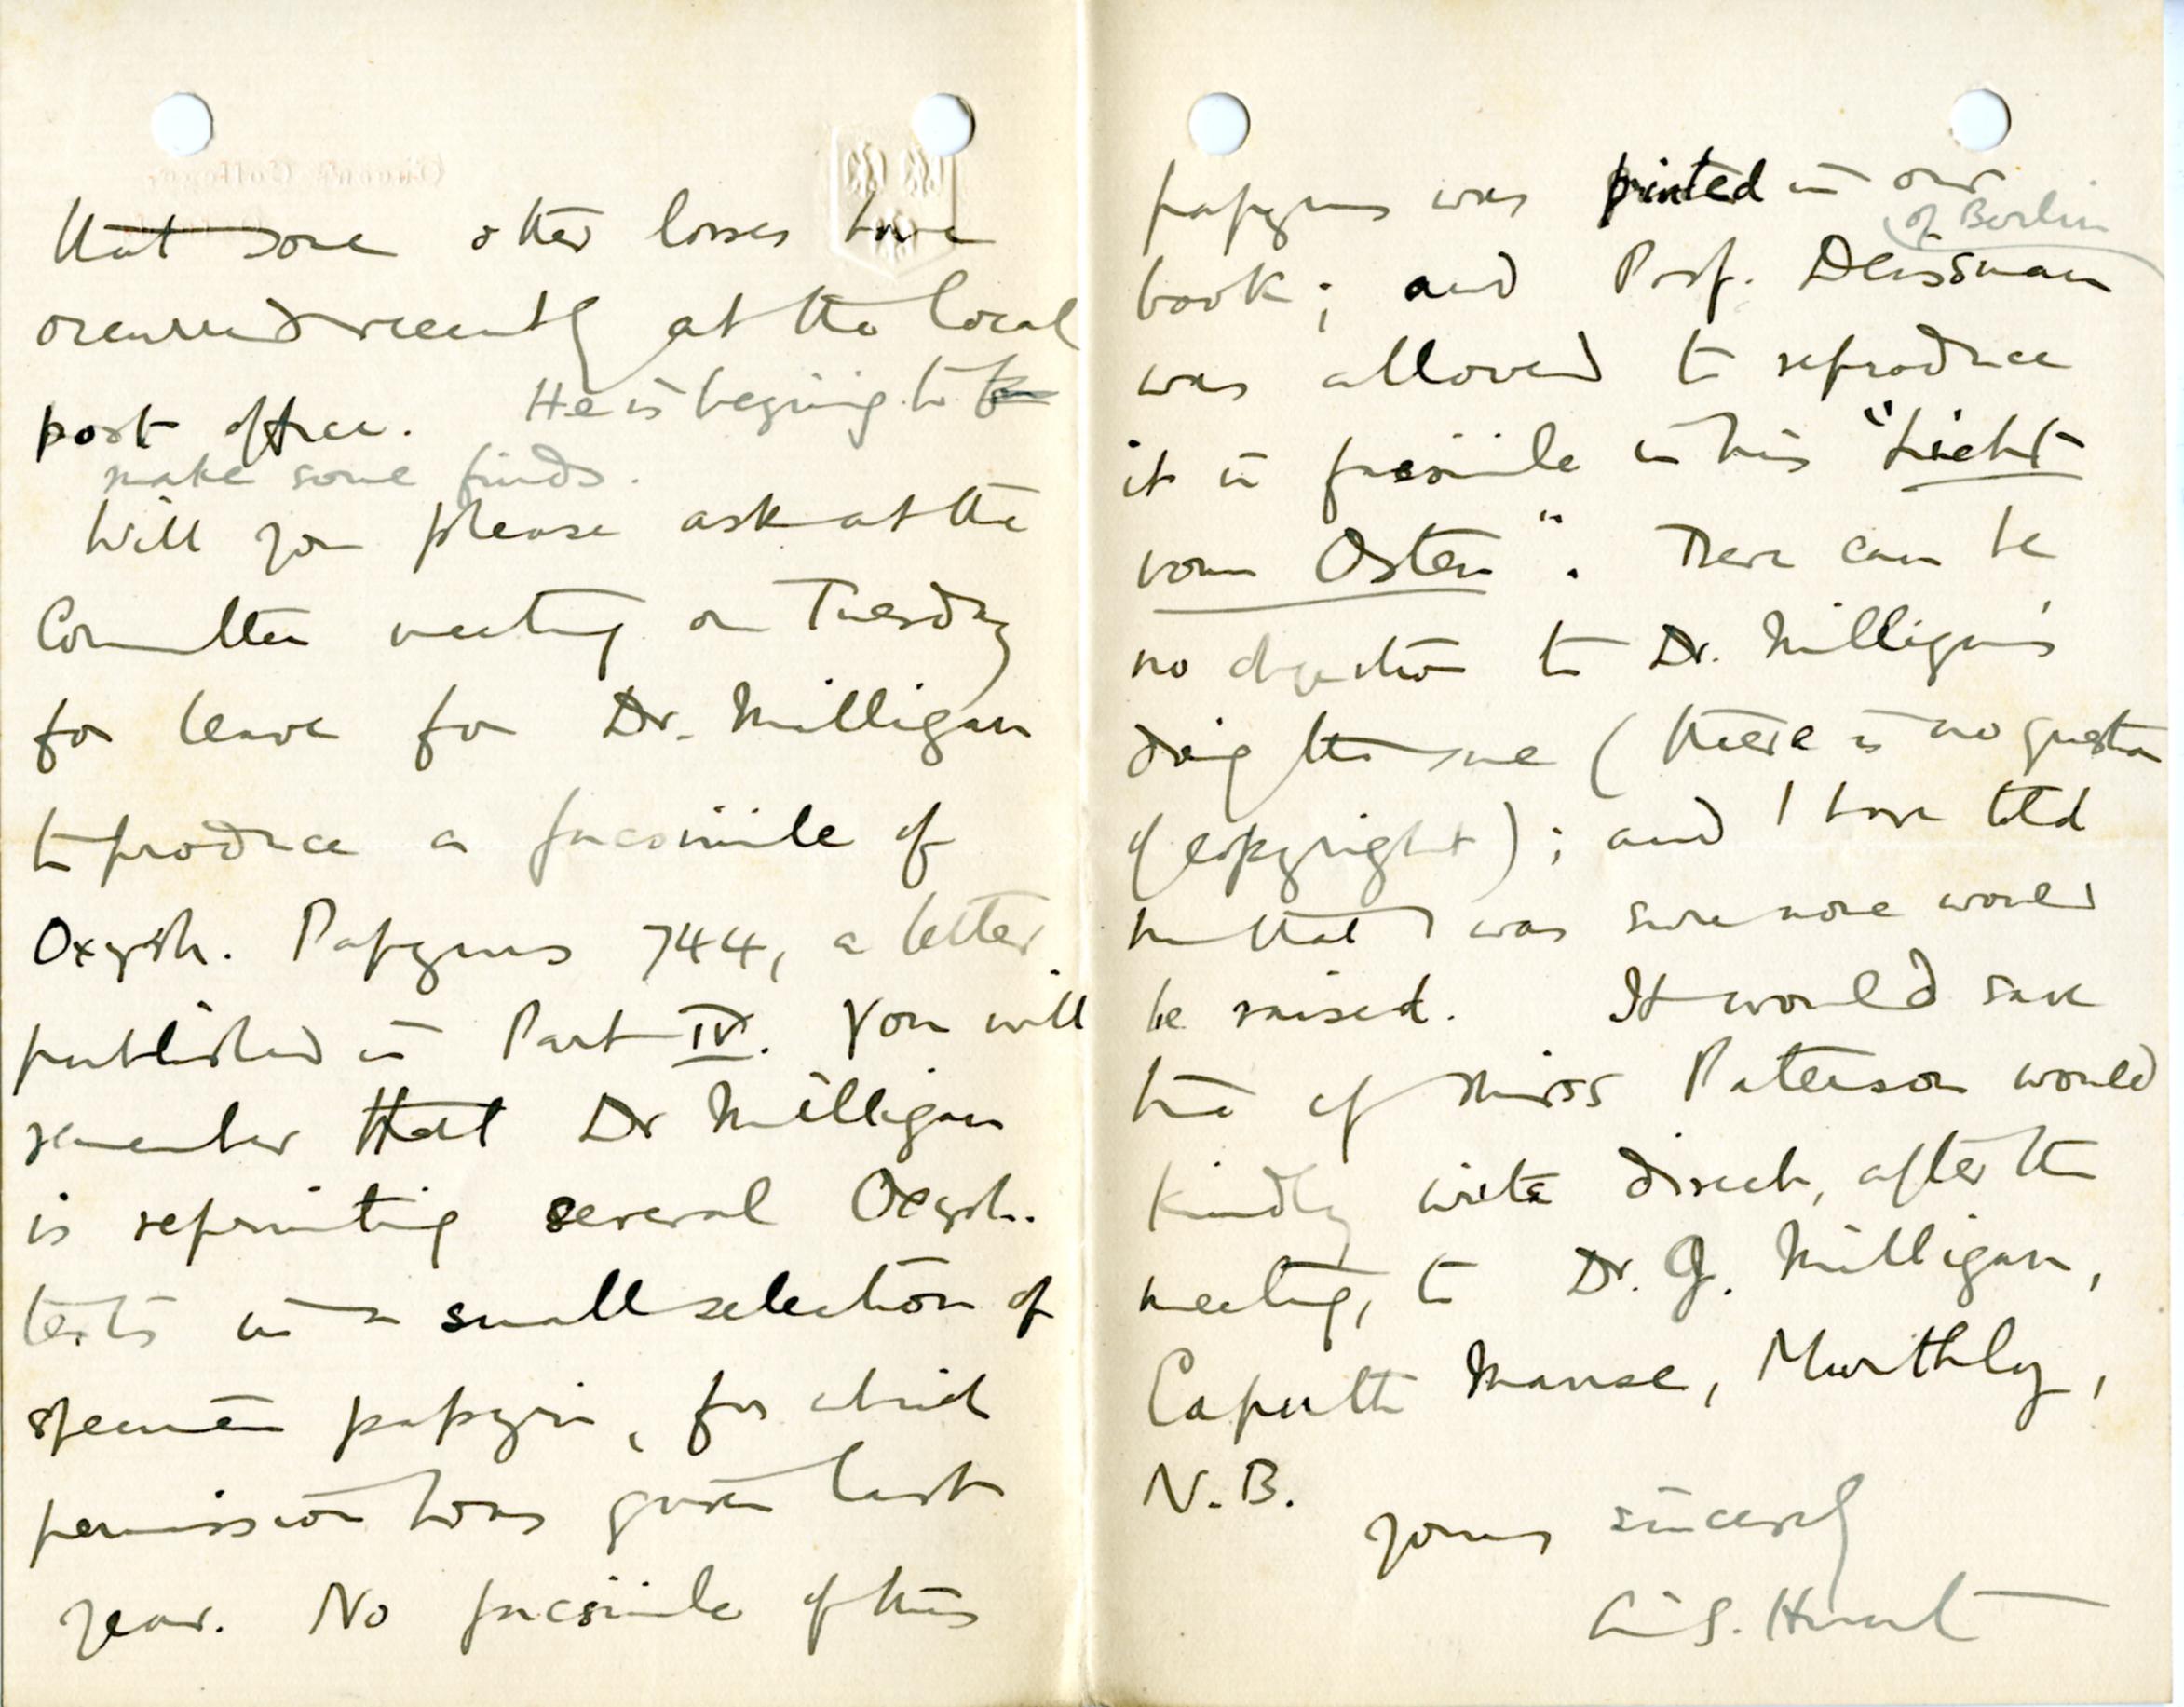 that some other losses have
occurred recently at the local
post office. He is beginning to
make some finds.
Will you please ask at the
Committee meeting on Tuesday
for leave for Dr. Milligan
to produce a facsimile of
Oxyrh. Papyrus 744, a letter
published in Part IV. You will
remember that Dr Milligan
is reprinting several Oxyrh.
texts in a small selection of
specimen papyri, for which
permission was given last
year. No facsimile of this
papyrus was printed in our
book; and Prof. Deissmann of Berlin
was allowed to reproduce
it in facsimile in his "Licht
vom Osten". There can be
no objection to Dr. Milligan's
doing the same (there is no question
of copyright); and I have told
him that I was sure none would
be raised. It would save
time if Miss Paterson would
kindly write direct, after the
meeting, to Dr. G. Milligan,
Caputh Manse, Murthly,
N.B.
Yours sincerely
A.S. Hunt